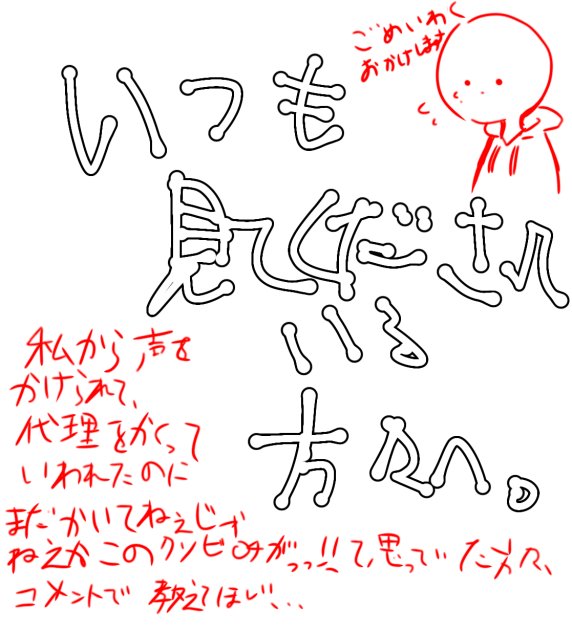 ごめいわく
おかけします
いつも
見てくださって
いる
方々へ。
私から声を
かけられて、
代理をかくって
いわれたのに
まだかいてねぇじゃ
ねえかこのクソピみがっっ!!て思っていた方へ、
コメントで教えてほしい...